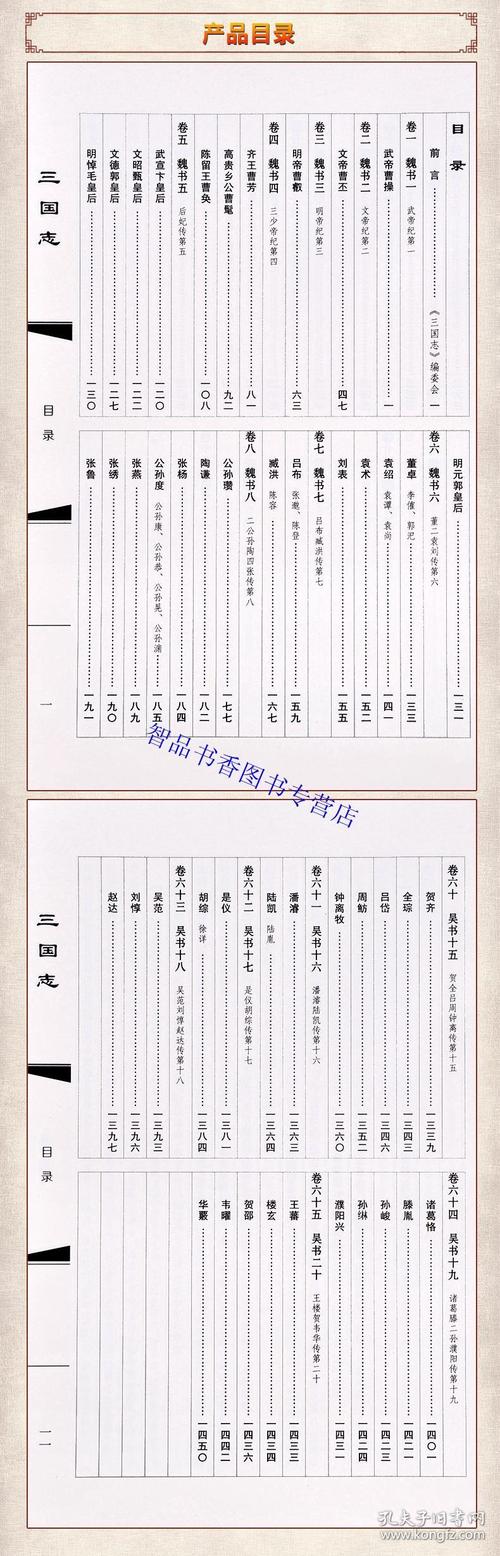 产品目录
目录
前言……《三国志》编委会 一
卷一 魏书一 武帝纪第一
武帝曹操……一
卷二 魏书二 文帝纪第二
文帝曹丕……四七
卷三 魏书三 明帝纪第三
明帝曹叡……六三
卷四 魏书四 三少帝纪第四
齐王曹芳……八一
高贵乡公曹髦……九二
陈留王曹奂……一〇八
卷五 魏书五 后妃传第五
武宣卞皇后……一二〇
文昭甄皇后……一二二
文德郭皇后……一二七
明悼毛皇后……一三〇
明元郭皇后……一三一
卷六 魏书六 董二袁刘传第六
董卓 李傕、郭汜……一三三
袁绍 袁谭、袁尚……一四一
袁术……一五二
刘表……一五五
卷七 魏书七 吕布臧洪传第七
吕布 张邈、陈登……一五九
臧洪 陈容……一六七
卷八 魏书八 二公孙陶四张传第八
公孙瓒……一七七
陶谦……一八二
张杨……一八四
公孙度 公孙康、公孙恭、公孙晃、公孙渊……一八五
张燕……一八九
张绣……一九〇
张鲁……一九一
三国志
目录
一
智品书香图书专营店
卷六十 吴书十五 贺全吕周钟离传第十五
贺齐……一三三九
全琮……一三四三
吕岱……一三四六
周鲂……一三五二
钟离牧……一三六〇
卷六十一 吴书十六 潘濬陆凯传第十六
潘濬……一三六三
陆凯 陆胤……一三六四
卷六十二 吴书十七 是仪胡综传第十七
是仪……一三八一
胡综 徐详……一三八四
卷六十三 吴书十八 吴范刘惇赵达传第十八
吴范……一三九三
刘惇……一三九六
赵达……一三九七
卷六十四 吴书十九 诸葛滕二孙濮阳传第十九
诸葛恪……一四〇一
滕胤……一四二二
孙峻……一四二三
孙綝……一四二四
濮阳兴……一四三一
卷六十五 吴书二十 王楼贺韦华传第二十
王蕃……一四三三
楼玄……一四三四
贺邵……一四三六
韦曜……一四四二
华覈……一四五〇
三国志
目录
一一
孔夫子旧书网
www.kongfz.com